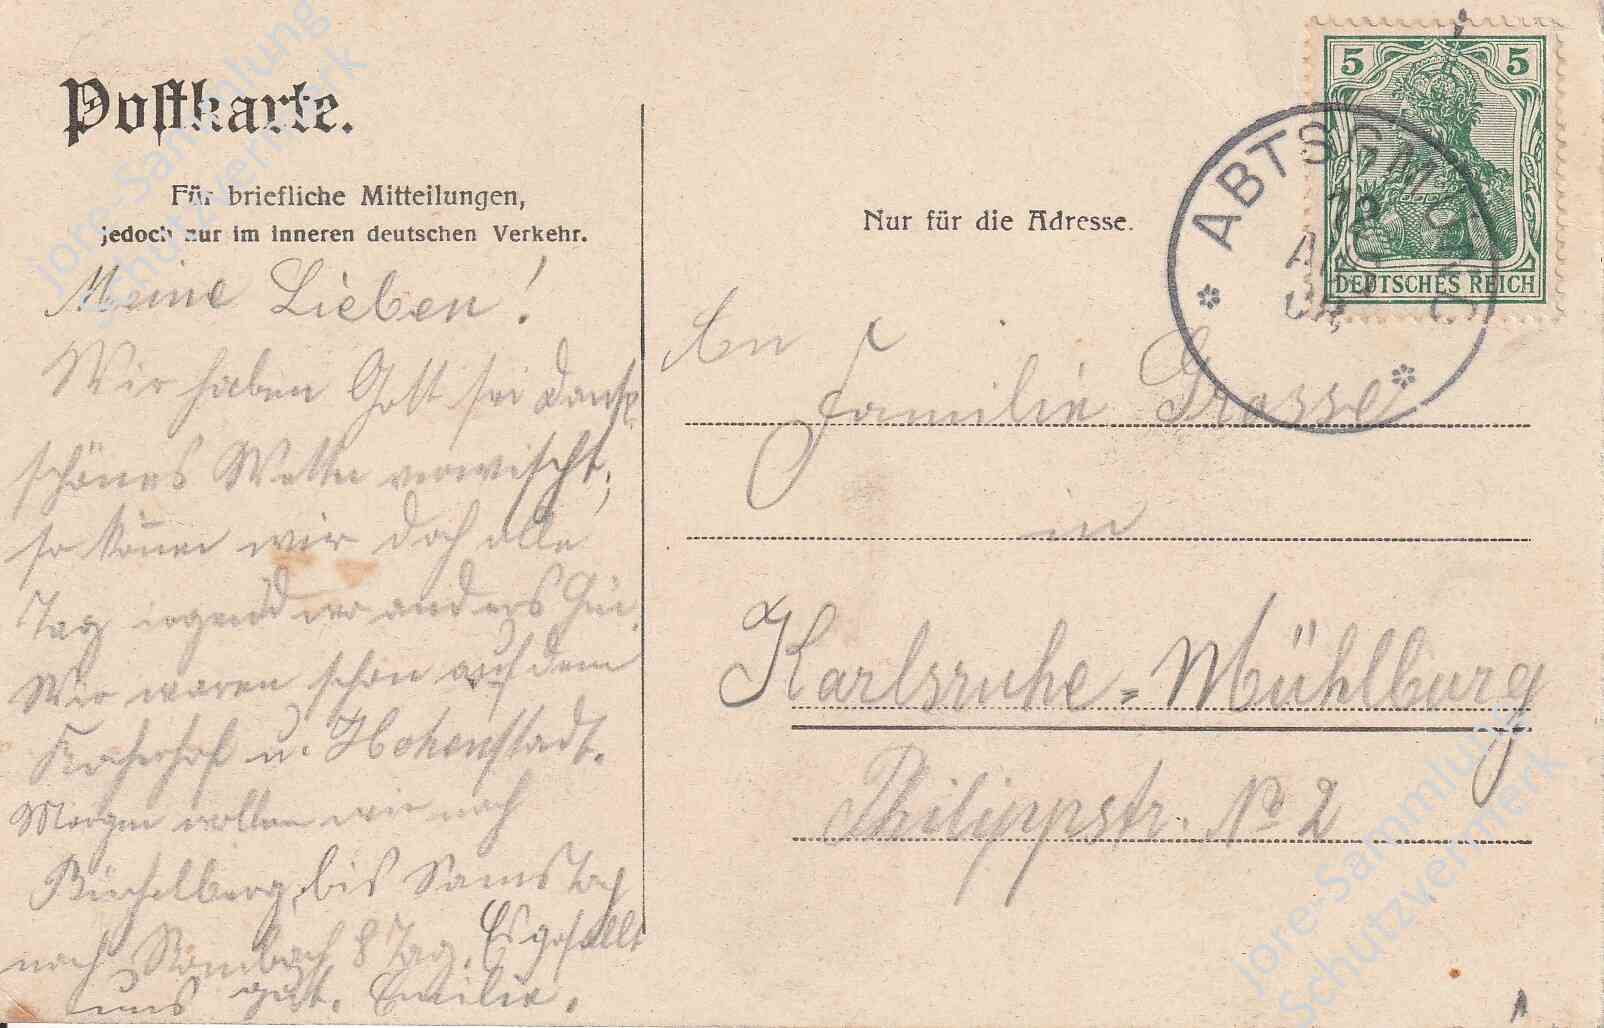 Postkarte.
Für briefliche Mitteilungen,
jedoch nur im inneren deutschen Verkehr.
Meine Lieben!
Wir haben Gott sei Dank
schönes Wetter verwischt,
so können wir doch alle
Tag irgend wo anders hin.
Wir waren schon auf dem
Kocherhof u. Hohenstadt.
Morgen wollen wir nach
Büchelberg, bis Samstag
nach 8 Tag. Es gefällt
uns gut. Emilie.
Nur für die Adresse.
5 5
DEUTSCHES REICH
ABTSGMÜND
An
Familie Grasse
in
Karlsruhe-Mühlburg
Philippstr. No 2
jore-Sammlung
Schutzvermerk
jore-Sammlung
Schutzvermerk